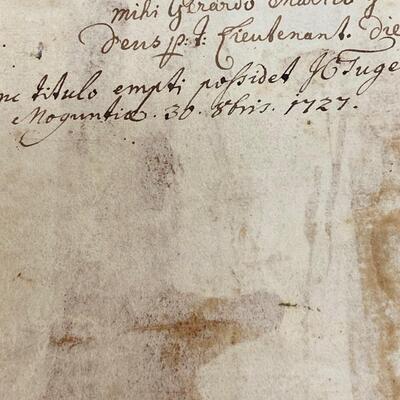 mihi Gerardo
Deus p. t. Lieutenant. die
nc titulo empti possidet JC Juge
Moguntiæ. 30. 8bris. 1727.